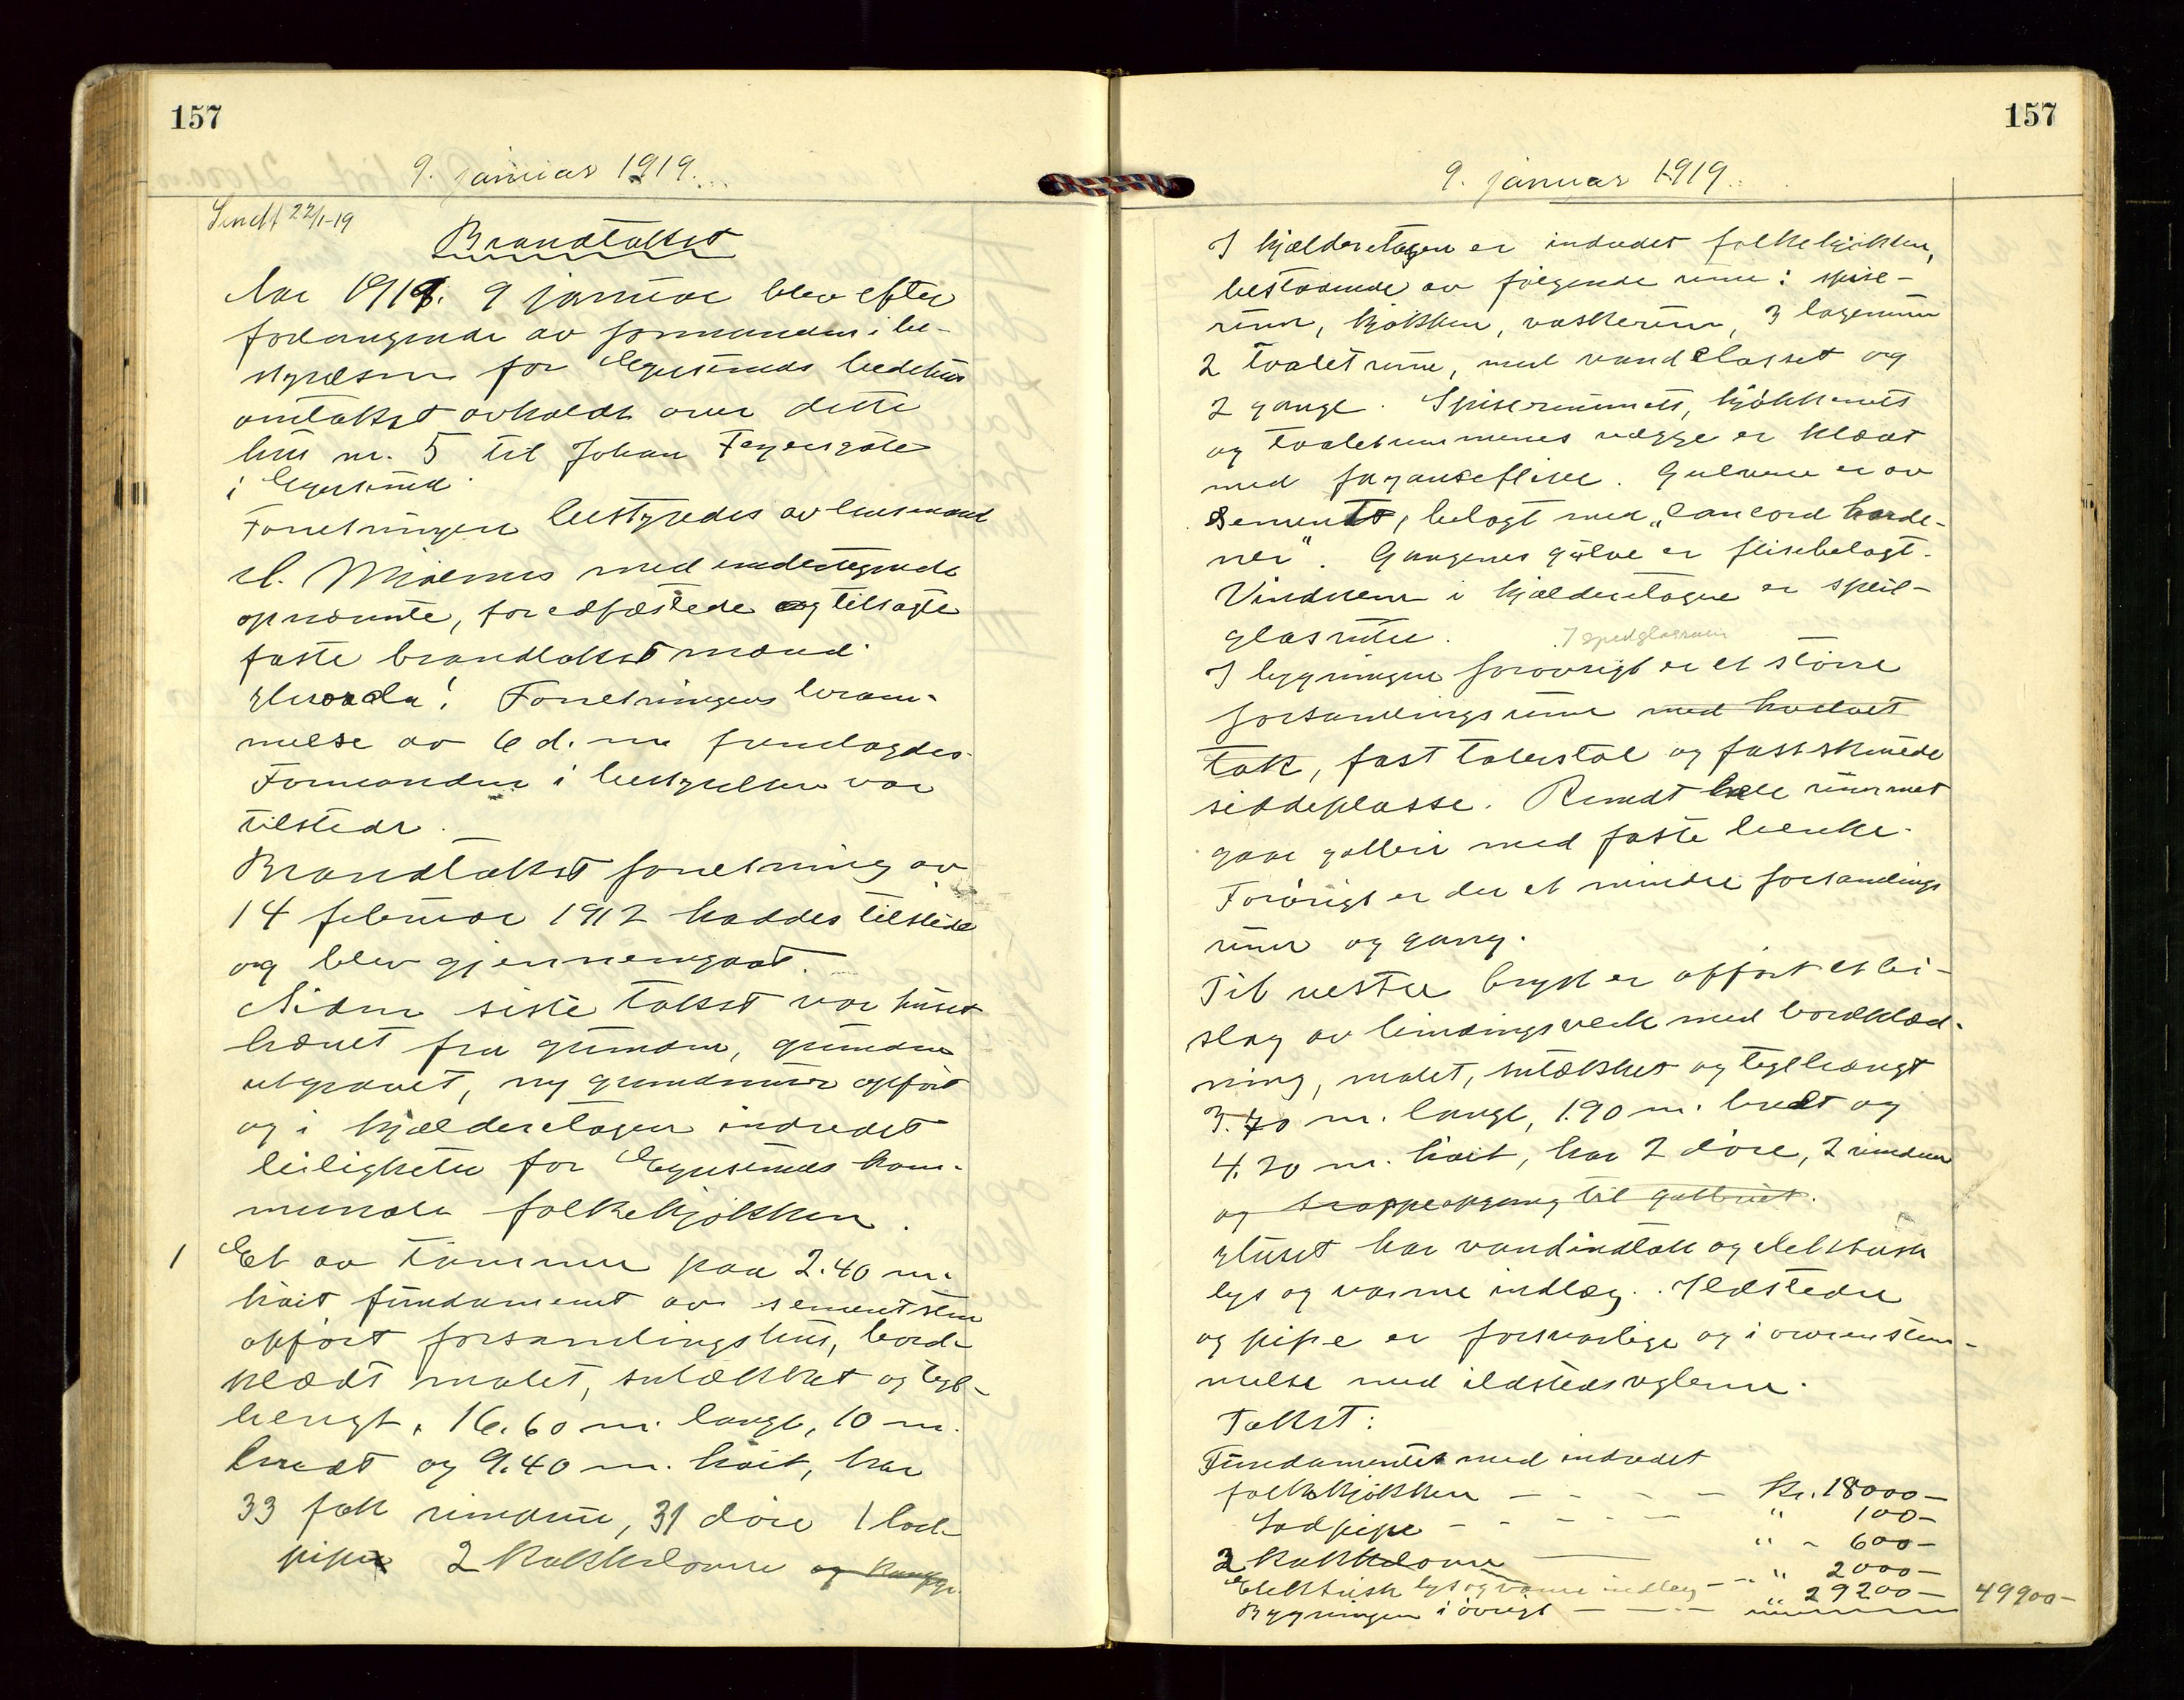 157
9. januar 1919.
Sendt 22/1-19
Brandtakst
Aar 1919. 9 januar blev efter
forlangende av formanden i be-
styrelsen for Egersunds bedehus
omtakst avholdt over dette
hus nr. 5 til Johan Feyersgate
i Egersund.
Forretningen bestyredes av lensmand
med undertegnede
opnævnte, foredfæstede og tilsagte
faste brandtakstmænd.
Hvorda! Forretningens beram-
melse av 6 d. m. fremlagdes.
Formanden i bestyrelsen var
tilstede.
Brandtakst forretning av
14 februar 1912 haddes tilstede
og blev gjennemgaat.
Siden siste takst var huset
hævet fra grunden, grunden
utgravet, ny grundmur opført
og i kjælderetagen indredet
leiligheter for Egersunds kom-
munale folkekjøkken.
1 Et av tømmer paa 2.40 m.
høit fundament av sementsten
opført forsamlingshus, bord-
klædt malet, sutækket og tegl-
hengt, 16.60 m. langt, 10 m.
bredt og 9.40 m. høit, har
33 fak vinduer, 31 døre 1 lod-
pipe 2 kakkelovne og
157
9. januar 1919.
I kjælderetagen er indredet folkekjøkken,
bestaaende av følgende rum: spise-
rum, kjøkken, vaskerum, 3 lagerrum
2 toaletrum, med vandclosset og
2 gange. Spiserummets, kjøkkenets
og toaletrummenes vægge er klædt
med fayanseflise. Gulvene er av
sement, belagt med "Concord harde-
ner". Gangenes gulve er flisebelagt.
Vinduerne i kjælderetagen er speil-
glasruter.
I bygningen forøvrigt er et større
forsamlingsrum med hvælvet
tak, fast talerstol og fastskruede
siddeplasse. Rundt hele rummet
gaar galleri med faste bænke.
Forøvrigt er der et mindre forsamlings
rum og gang.
Til vestre bryst er opført et bi-
slag av bindingsverk med bordklæd-
ning, malet, sutækket og teglhængt
3.70 m. langt, 1.90 m. bredt og
4.20 m. høit, har 2 døre, 2 vinduer
og trappeopgang til galleriet.
Huset har vandindtak og elektrisk
lys og varme indlæg. Ildstedene
og pipe er forsvarlige og i overenstem-
melse med ildstedsreglerne.
Takst:
Fundamentet med indredet
folkekjøkken — Kr. 18000 —
Lodpipe — " 100 —
2 Kakkelovne — " 600 —
Elektrisk lys og varme indlæg — " 2000 —
Bygningen i øvrigt — " 29200 — 49900 —